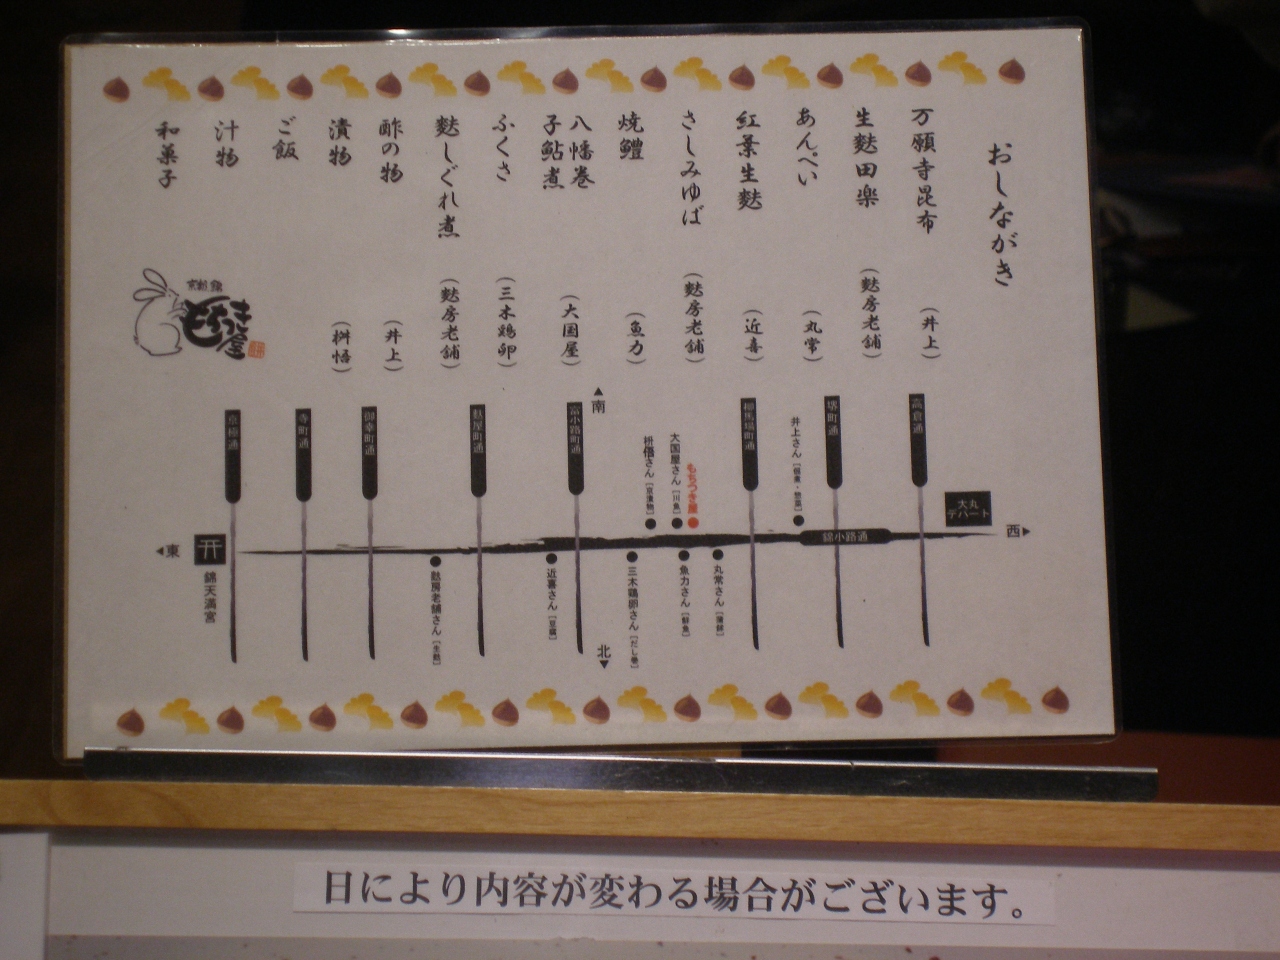 おしながき
万願寺昆布 (井上)
生麩田楽 (麩房老舗)
あんぺい (丸常)
紅葉生麩 (近喜)
さしみゆば (麩房老舗)
焼鱧 (魚力)
八幡巻
子鮎煮 (大国屋)
ふくさ (三木鶏卵)
麩しぐれ煮 (麩房老舗)
酢の物 (井上)
漬物 (桝悟)
ご飯
汁物
和菓子
もちつき屋
▲南
高倉通
堺町通
柳馬場町通
富小路町通
麩屋町通
御幸町通
寺町通
京極通
大丸
デパート
西▶
井上さん [佃煮・惣菜]
もちつき屋
大国屋さん [川魚]
桝悟さん [京漬物]
錦小路通
◀東
錦天満宮
丸常さん [蒲鉾]
魚力さん [鮮魚]
三木鶏卵さん [だし巻]
近喜さん [豆腐]
麩房老舗さん [生麩]
北▼
日により内容が変わる場合がございます。